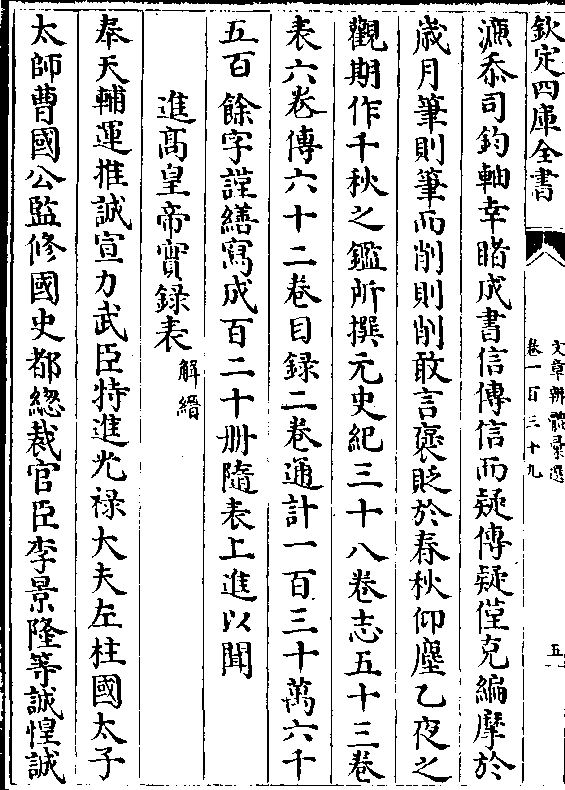 欽定四庫全書
文章辨體彚選
卷一百三十九
五
濂忝司鈞軸幸睹成書信傳信而疑傳疑僅克編摩於
歳月筆則筆而削則削敢言褒貶於春秋仰塵乙夜之
觀期作千秋之鑑所撰元史紀三十八卷志五十三卷
表六卷傳六十二卷目録二卷通計一百三十萬六千
五百餘字謹繕寫成百二十册隨表上進以聞
進髙皇帝實録表 解縉
奉天輔運推誠宣力武臣特進光禄大夫左柱國太子
太師曹國公監修國史都總裁官臣李景隆等誠惶誠